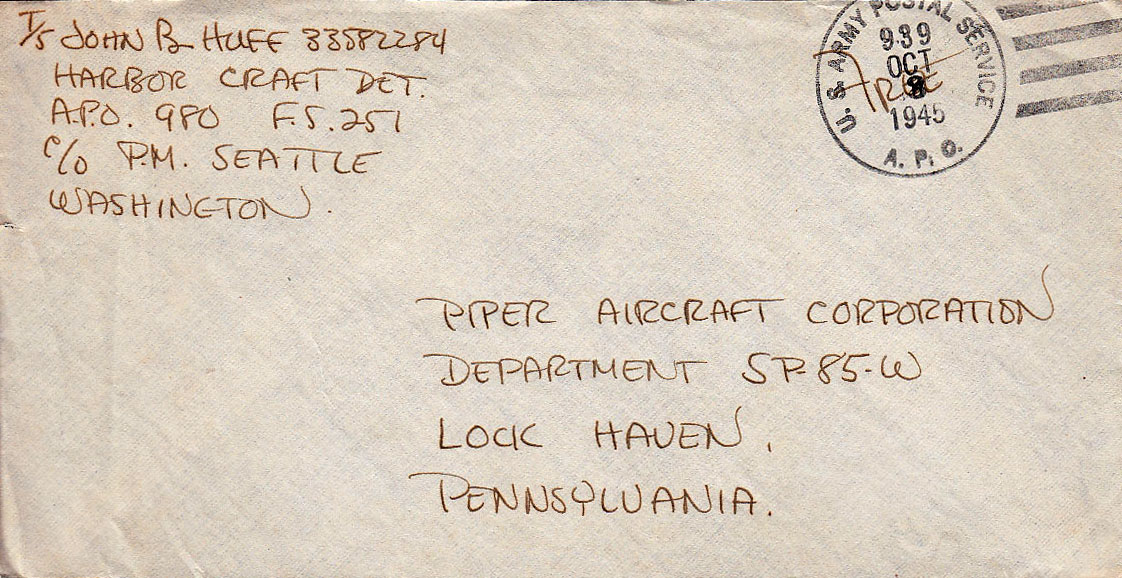 T/5 JOHN B. HUFF 33582284
HARBOR CRAFT DET.
A.P.O. 980 F.S. 251
C/O P.M. SEATTLE
WASHINGTON.
U.S. ARMY POSTAL SERVICE
939
OCT
8
1945
A.P.O.
FREE
PIPER AIRCRAFT CORPORATION
DEPARTMENT SP-85-W
LOCK HAVEN,
PENNSYLVANIA.